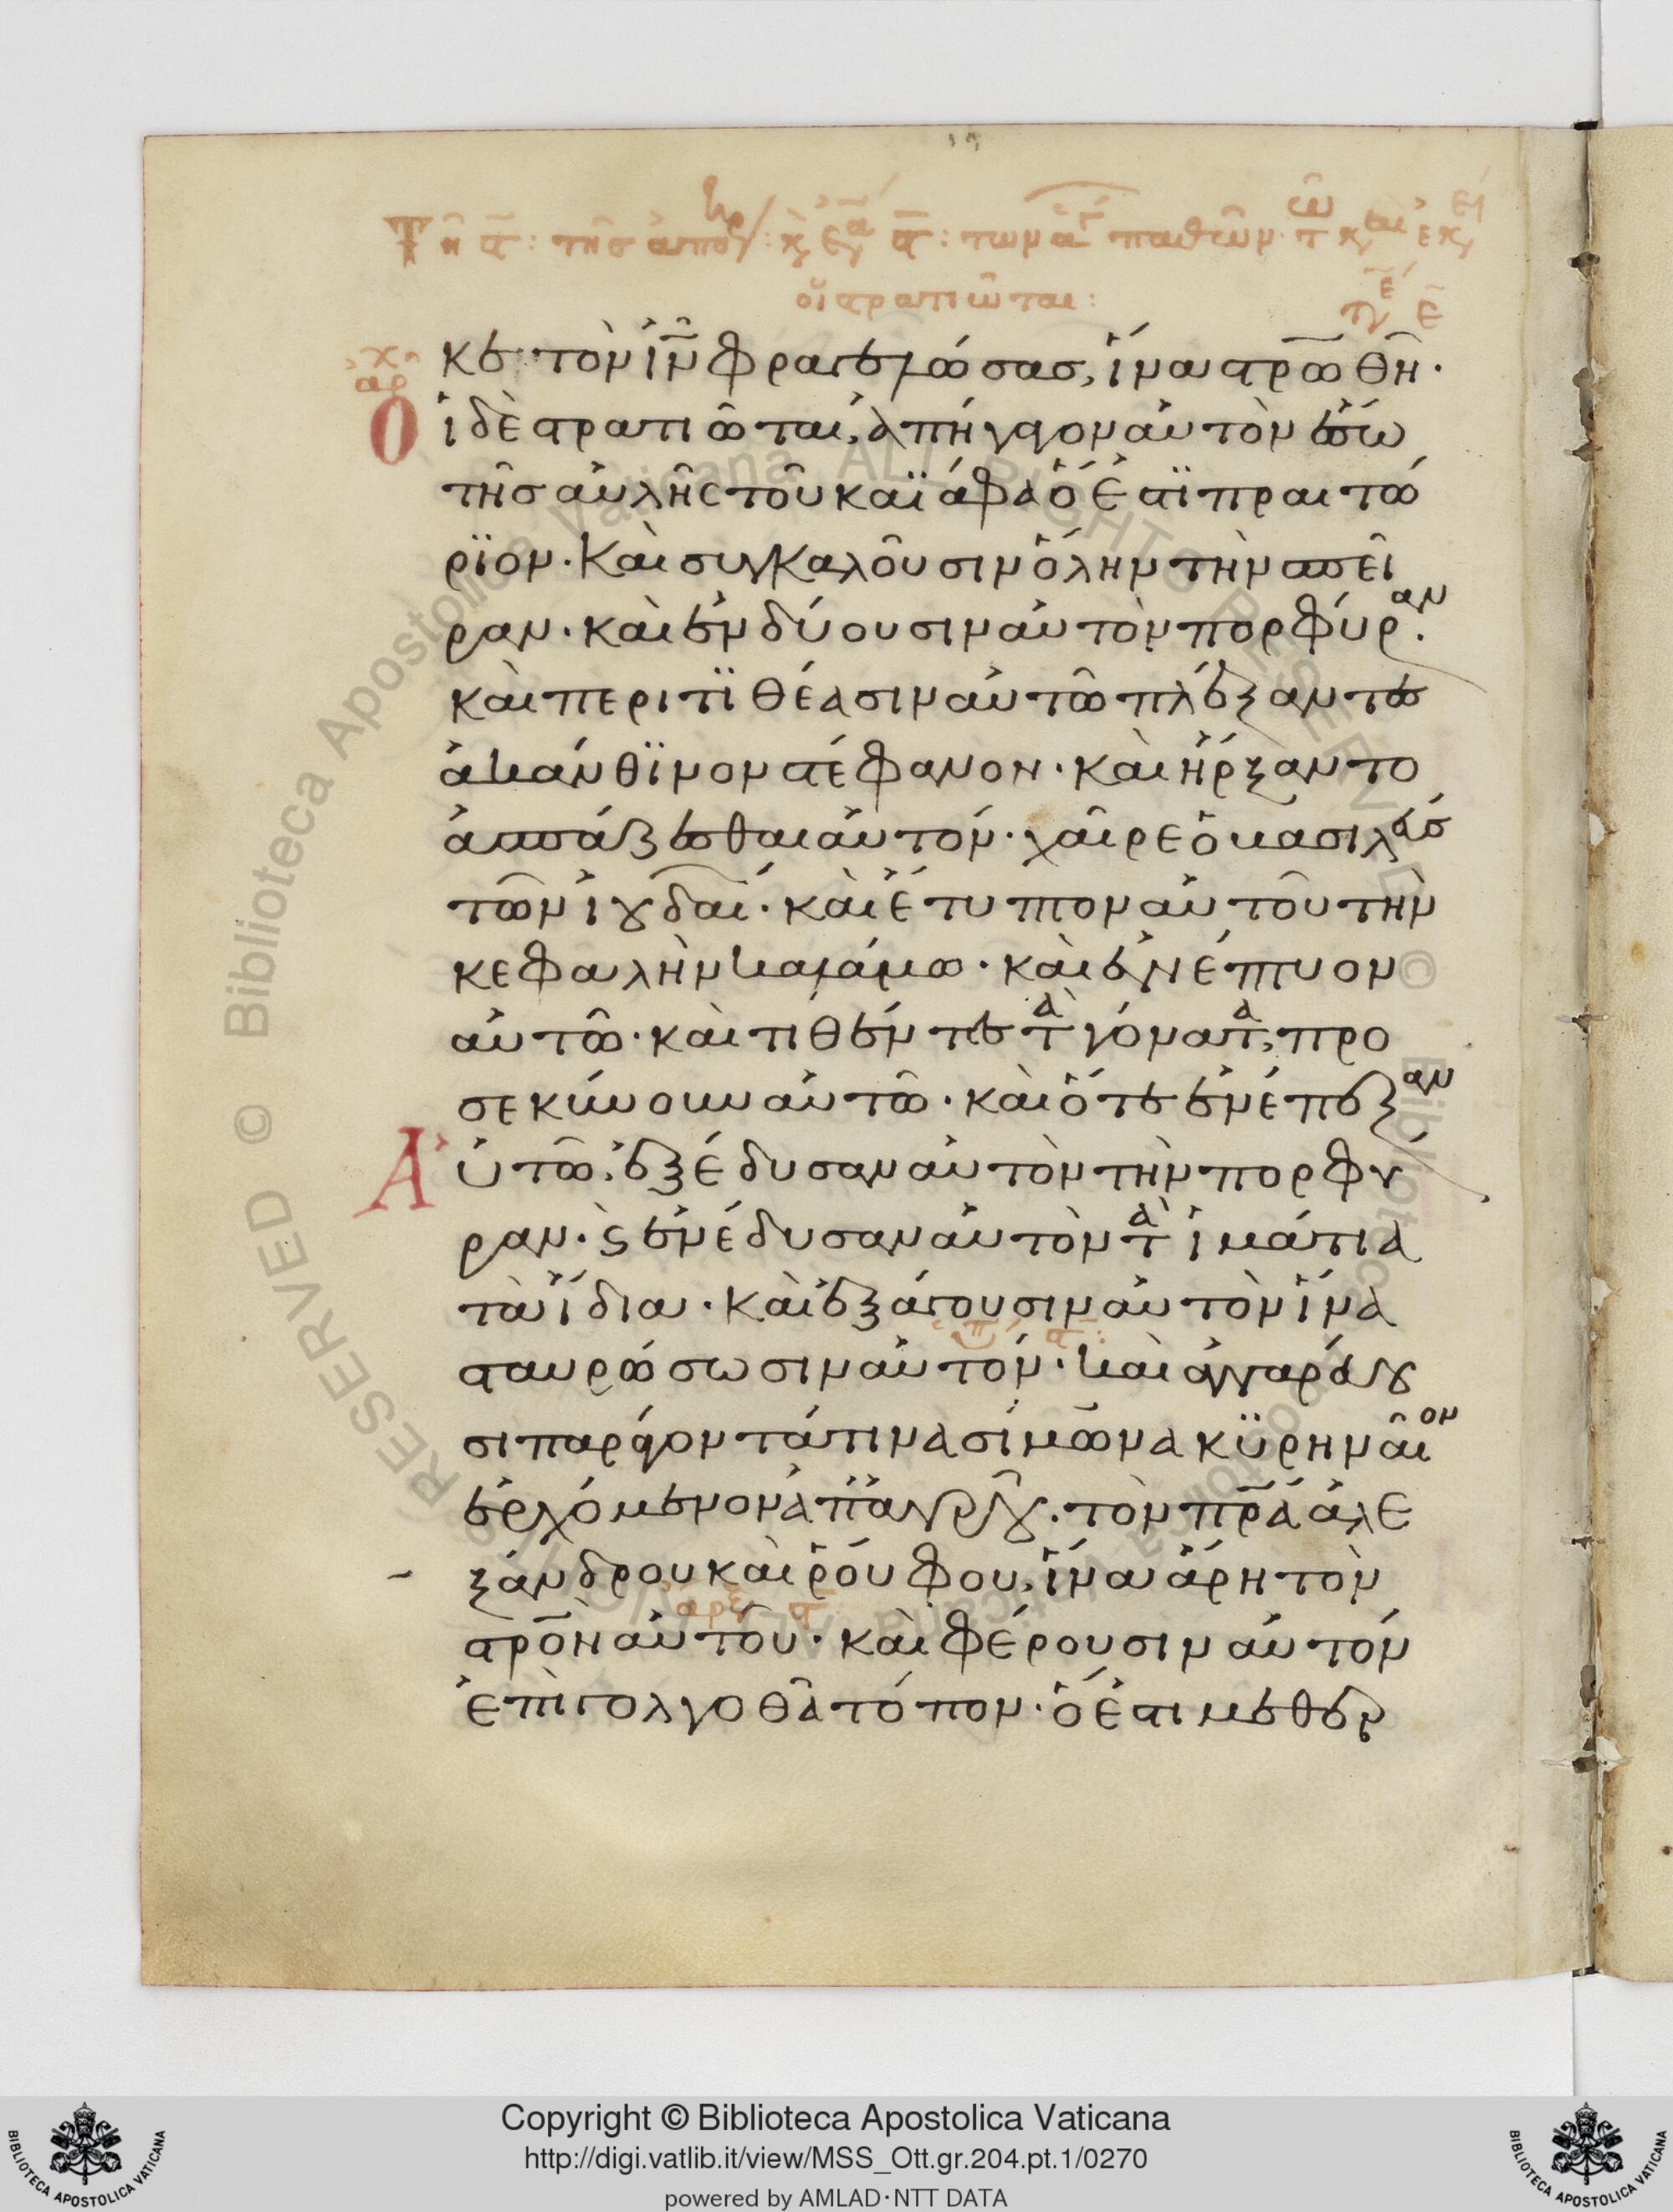 κε τὸν ἰν̅ φραγελλώσας, ἵνα στρωθῆ·
Οἱ δὲ στρατιῶται, ἀπήγαγον αὐτὸν ἔσω
τῆς αὐλῆς τοῦ καϊάφα ὅ ἐστϊ πραιτώ
ρϊον. Καὶ συγκαλοῦσιν ὅλην τὴν σπεῖ
ραν. καὶ ἐνδύουσιν αὐτὸν πορφύραν.
καὶ περιτϊθέασιν αὐτῶ πλέξαντες
ἀκάνθϊνον στέφανον. καὶ ἤρξαντο
ἀσπάζεσθαι αὐτόν. χαῖρε ὁ βασιλεύς
τῶν ἰουδαί. καὶ ἔτυπτον αὐτοῦ τὴν
κεφαλὴν καλάμω. καὶ ἐνέπτυον
αὐτῶ. καὶ τιθέντες τὰ γόνατα, προ
σεκύνουν αὐτῶ. καὶ ὅτε ἐνέπεξαν
Αὐτῶ, ἐξέδυσαν αὐτὸν τὴν πορφύ
ραν. ϛ ἐνέδυσαν αὐτὸν τὰ ἱμάτια
τὰ ἴδια. καὶ ἐξάγουσιν αὐτὸν ἵνα
σταυρώσωσιν αὐτόν. καὶ ἀγγαρεύου
σι παράγοντά τινα σίμωνα κϋρηναῖον
ἐρχόμενον ἀπ ἀγροῦ. τὸν πρ̅α ἀλε
ξάνδρου καὶ ῥούφου, ἵνα ἄρη τὸν
στρο̅ν αὐτοῦ. καὶ φέρουσιν αὐτόν
ἐπὶ γολγοθᾶ τόπον. ὅ ἐστι μεθερ
Copyright © Biblioteca Apostolica Vaticana
http://digi.vatlib.it/view/MSS_Ott.gr.204.pt.1/0270
powered by AMLAD·NTT DATA
BIBLIOTECA APOSTOLICA VATICANA
BIBLIOTECA APOSTOLICA VATICANA